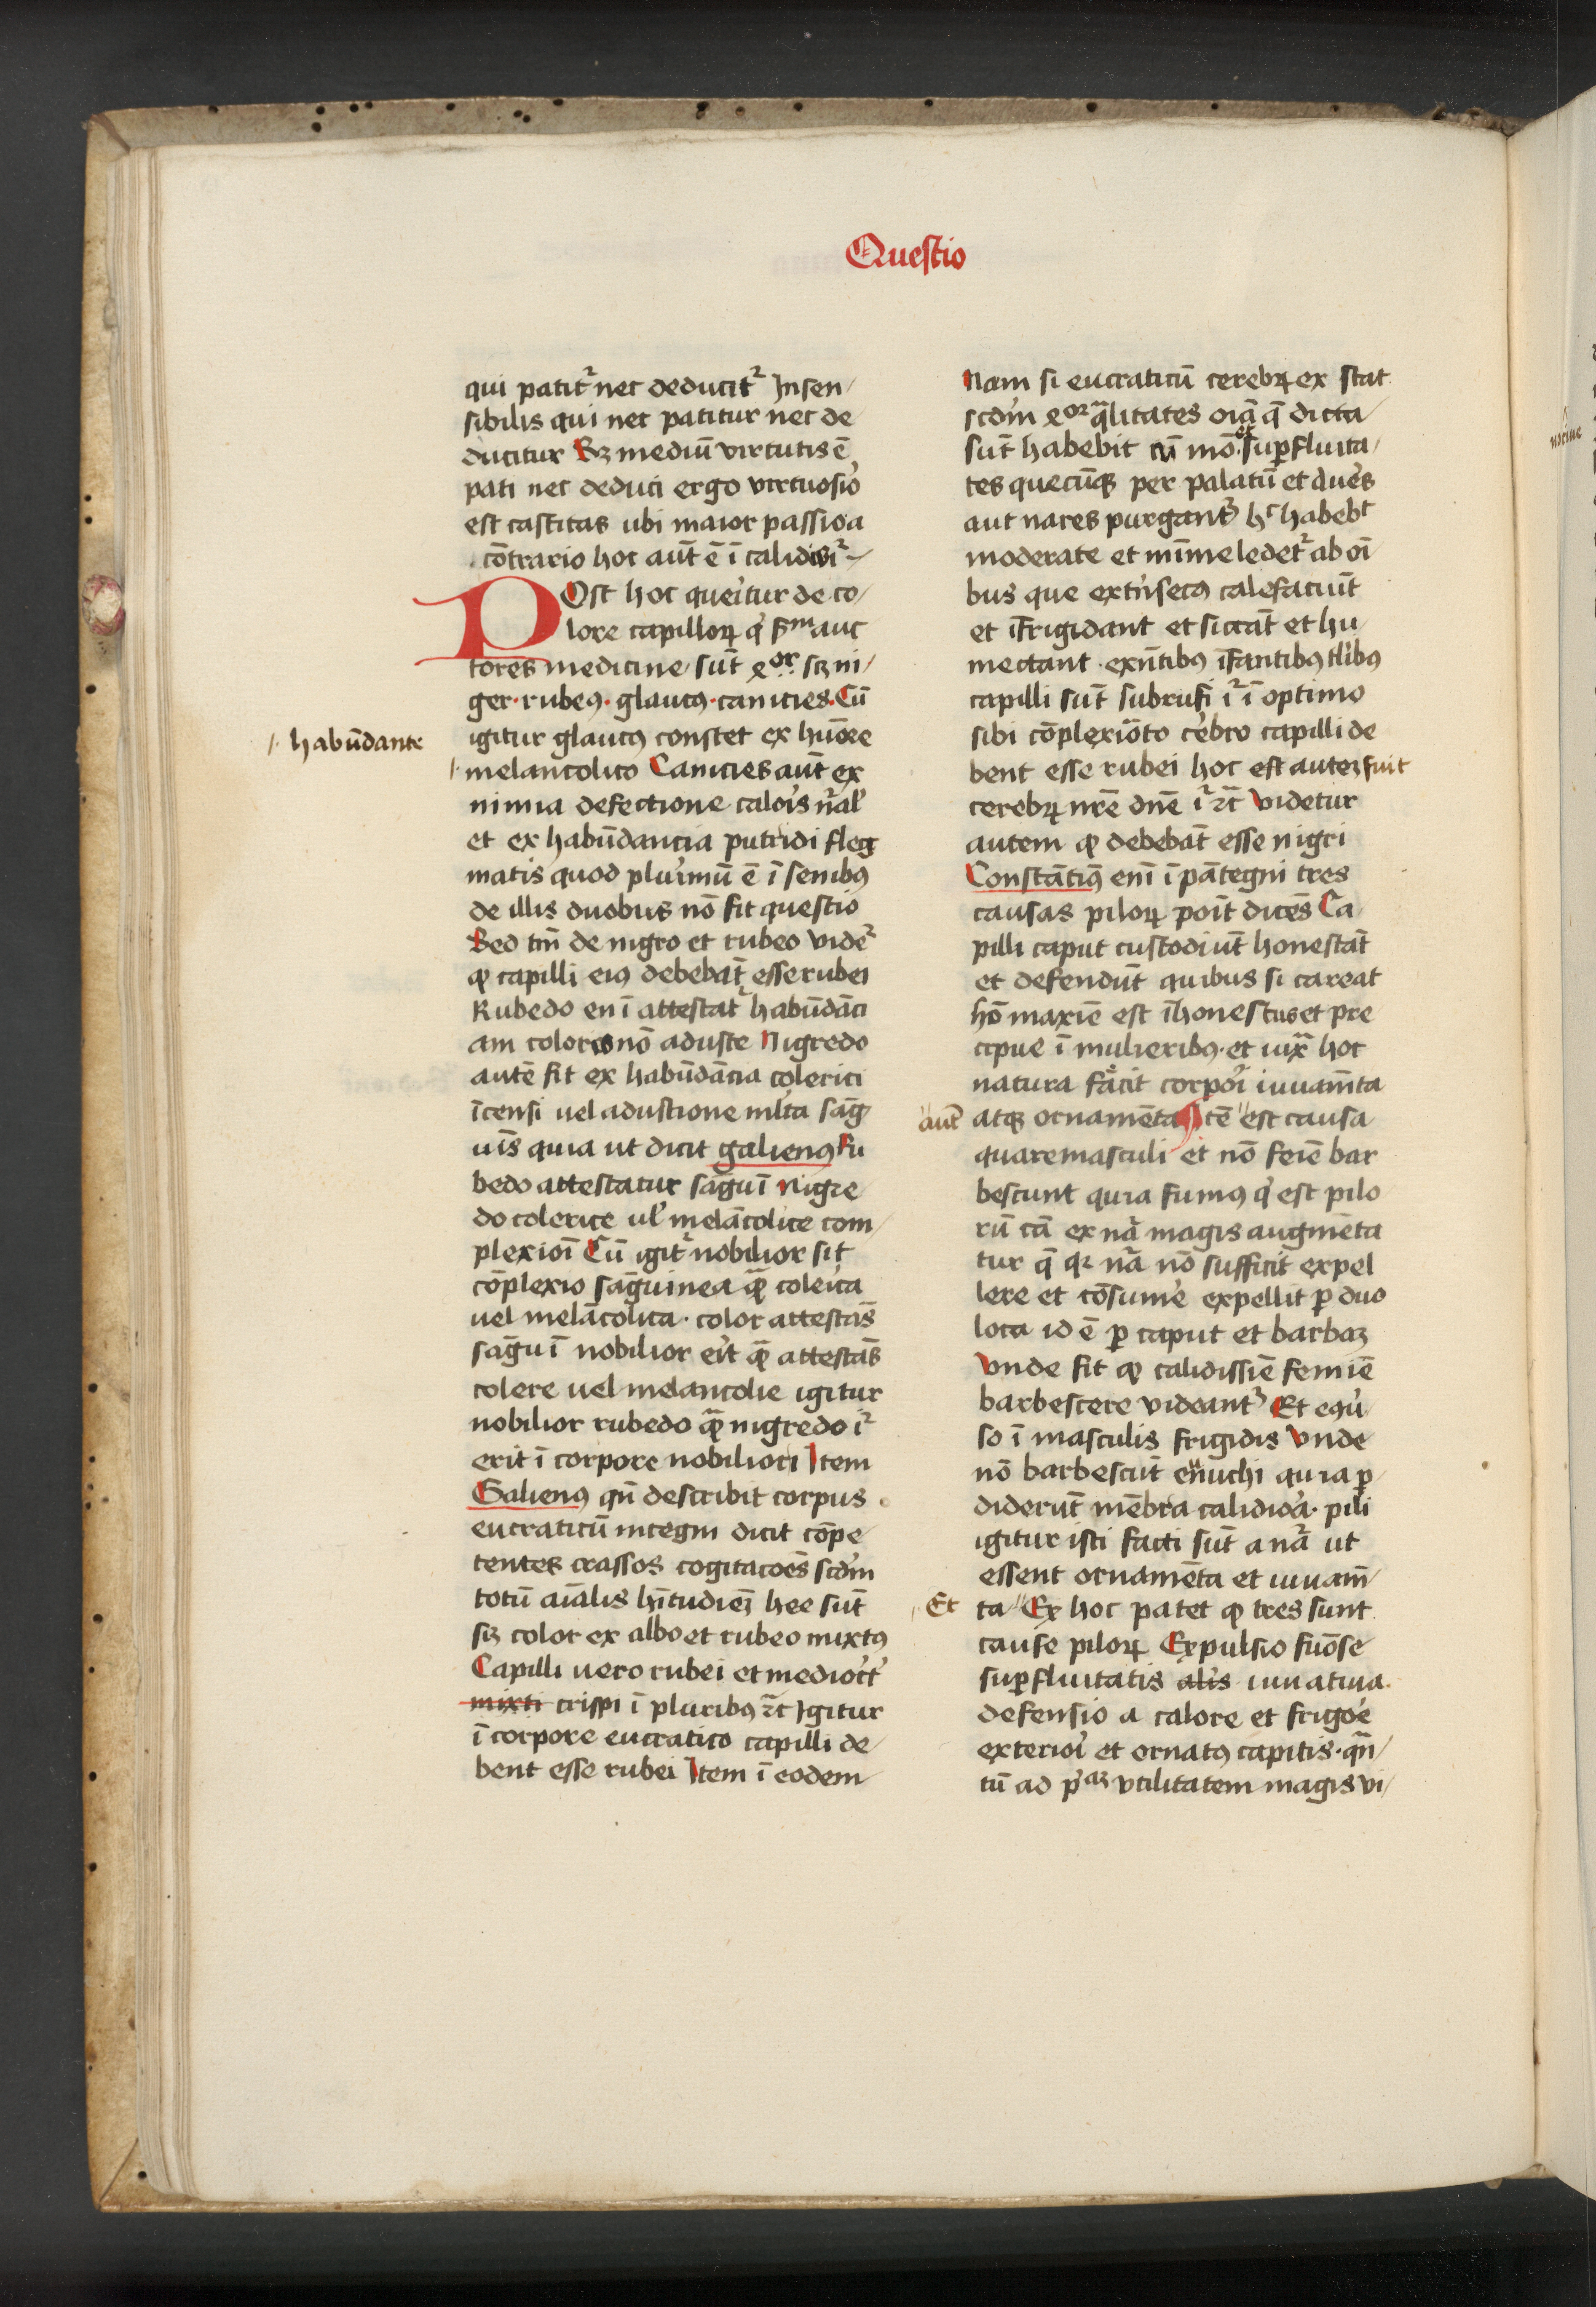 Questio
qui patitꝛ nec deducitꝛ Insen/
sibilis qui nec patitur nec de
ducitur Sꝫ mediū virtutis ē
pati nec deduci ergo virtuosiꝰ
est castitas ubi maior passio a
cōtrario hoc aūt ē ī calidioriꝰ
POst hoc queritur de co/
lore capilloꝝ qͥ ẜm auc
tores medicine sūt 4or scꝫ ni/
ger · rubeꝰ · glaucꝰ · canicies. Cū
igitur glaucꝰ constet ex hūore
/· habūdante
melancolico Canicies aūt ex
nimia defectione caloris nal'
et ex habūdancia putridi fleg
matis quod plurimū ē ī senibꝰ
de illis duobus nō fit questio
Sed tm̄ de nigro et rubeo videꝛ
ꝙ capilli eiꝰ debebāt esse rubei
Rubedo enī attestatꝛ habūdāci
am coloris nō aduste Nigredo
autē fit ex habūdācia colerici
īcensi uel adustione mlta sāg
uīs quia ut dicit galienꝰ Ru
bedo attestatur sāguī Nigre
do colerice ul' melācolice com/
plexioī Cū igitꝛ nobilior sit
cōplexio sāguinea qᷓꝫ colerica
uel melācolica · color attestās
sāguī nobilior erit qᷓꝫ attestās
colere uel melancolie igitur
nobilior rubedo qᷓꝫ nigredo iꝛ
erit ī corpore nobiliori Item
Galienꝰ qn̄ describit corpus
eucraticū in tegni dicit cōpe
tentes crassos cogitacoēs scdm
totū aīalis hītudieꝫ hee sūt
scꝫ color ex albo et rubeo mixtꝰ
Capilli uero rubei et mediocr'
mixti crispi ī pluribꝰ ꝛc̄ Igitur
ī corpore eucratico capilli de/
bent esse rubei Item ī eodem
Nam si eucraticū cerebꝝ ex stat
scdm 4or qᷓlitates oīa q̄ dicta
sūt habebit cū mō. et suꝑfluita/
tes quecūqꝫ per palatū et aures
aut nares purgantꝛ hͨ habebt
moderate et mīme ledetꝛ ab oī
bus que extrīsecꝰ calefaciūt
et īfrigidant et siccāt et hu/
mectant · exn̄tibꝰ īfantibꝰ tlibꝰ
capilli sūt subrufi iꝛ ī optimo
sibi cōplexiōto cerebro capilli de
bent esse rubei hoc est auteꝫ fuit
cerebꝝ nrē dnē iꝛ ꝛc̄ Videtur
autem ꝙ debebāt esse nigri
Constātinꝰ enī ī pātegni tres
causas piloꝝ poīt dicēs Ca
pilli caput custodiūt honestāt
et defendūt quibus si careat
hō maxīe est īhonestus et pre
cipue ī mulieribꝰ · et iuxᷓ hoc
natura facit corpori iuuam̄ta
atqꝫ ornamēta Itē "est causa
"aūt
quare masculi et nō feīe bar
bescunt quia fumꝰ qͥ est pilo
rū cā ex nᷓa magis augmēta
tur q̄ qꝛ nᷓa nō sufficit expel
lere et cōsume' expellit ꝑ duo
loca id ē ꝑ caput et barbaꝫ
Vnde fit ꝙ calidissīe femīe
barbescere videantꝛ Et eqū/
so ī masculis frigidis Vnde
nō barbescūt enuchi quia ꝑ
diderūt mēbra calidiora · pili
igitur isti facti sūt a nᷓa ut
essent ornamēta et iuuam̄
ta "Ex hoc patet ꝙ tres sunt
Et
cause piloꝝ Expulsio fuōse
suꝑfluitatis alis iuuatiua.
defensio a calore et frigore
exteriori et ornatꝰ capitis · qn̄/
tū ad pͥaꝫ vtilitatem magis vi/